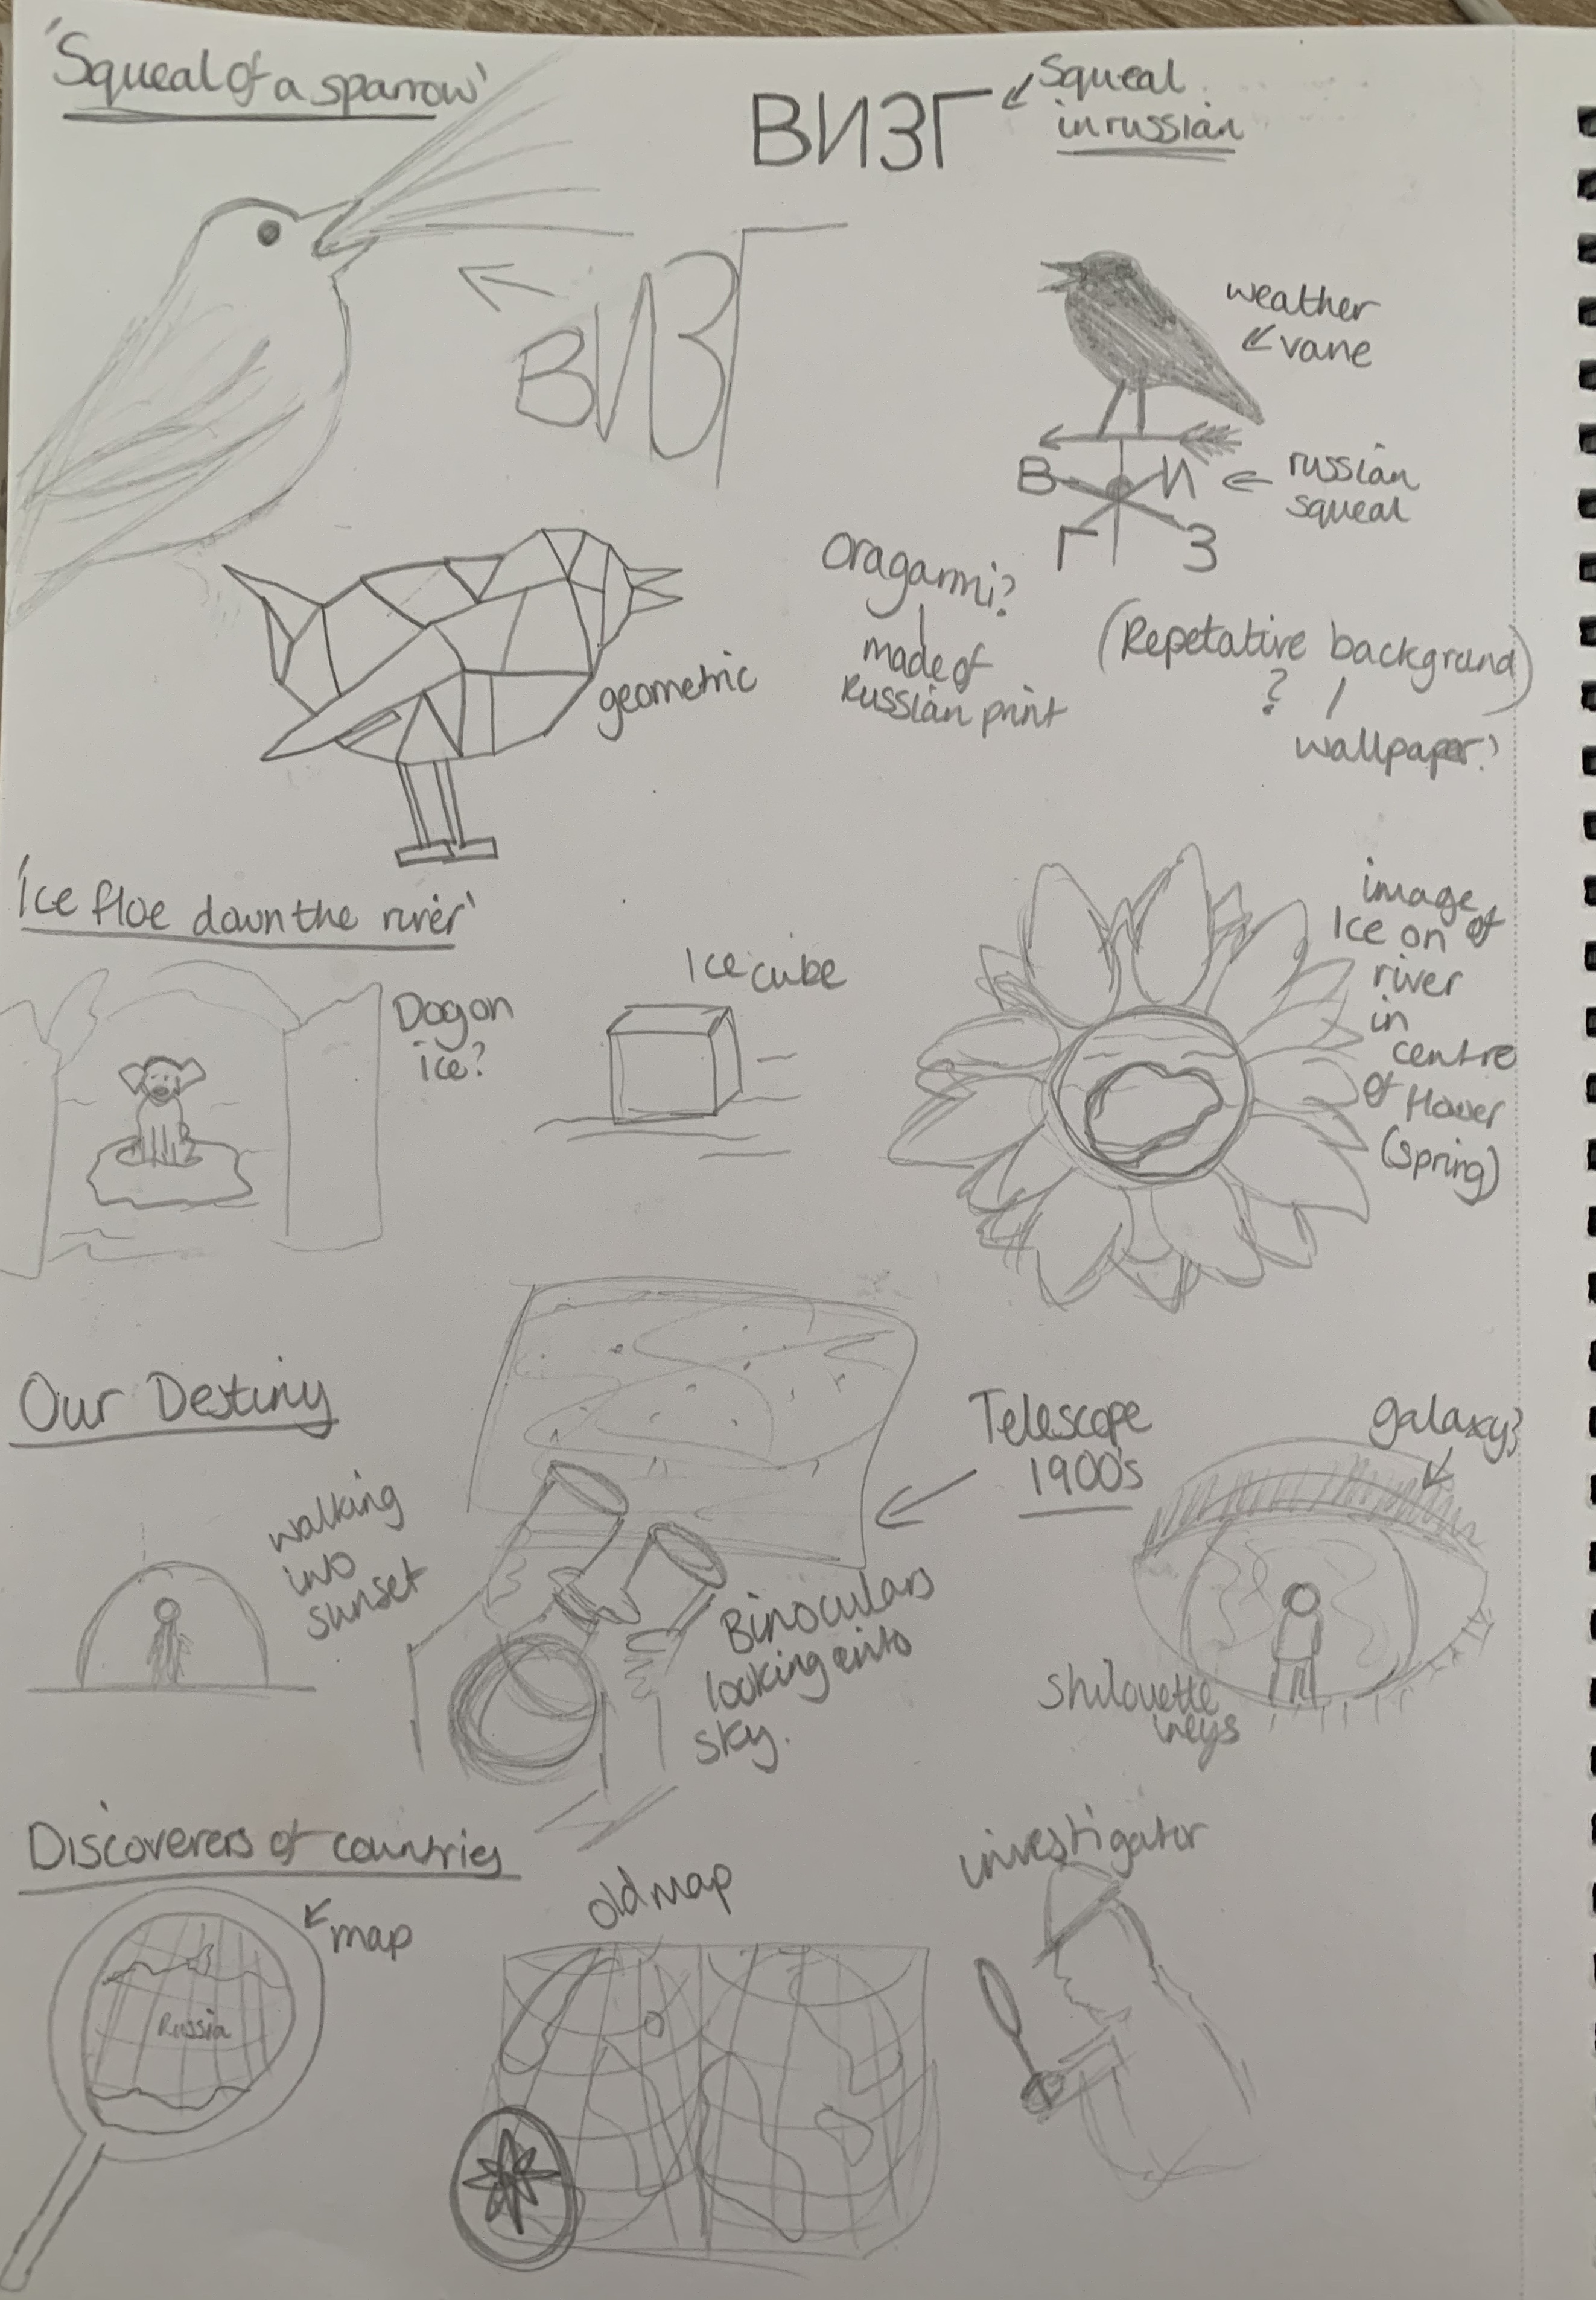 'Squeal of a sparrow'
ВИЗГ
Squeal
in russian
ВИЗГ
weather
vane
В И
Г З
russian
squeal
geometric
Oragammi?
made of
Russian print
(Repetative background)
?
wallpaper?
'Ice floe down the river'
Dog on
ice?
Ice cube
image of
Ice on
river
in
centre
of flower
(spring)
Our Destiny
walking
into
sunset
Telescope
1900's
Binoculars
looking into
sky.
galaxy?
Shilouette
in eys
Discoverers of countries
map
Russia
old map
investigator